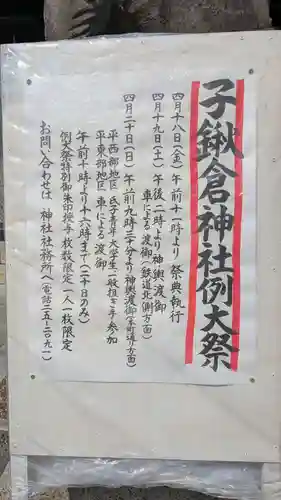 子鍬倉神社例大祭
四月十八日(金)午前十一時より 祭典執行
四月十九日(土)午後一時より神輿渡御
車による渡御(鉄道北側方面)
四月二十日(日)午前九時三十分より神輿渡御(本町通り方面)
平西部地区 氏子青年・大学生一般担ぎ手参加
平東部地区 車による渡御
午前十時より十六時まで(二十日のみ)
例大祭特別御朱印授与枚数限定一人一枚限定
お問い合わせは 神社社務所へ(電話二五―二〇九一)